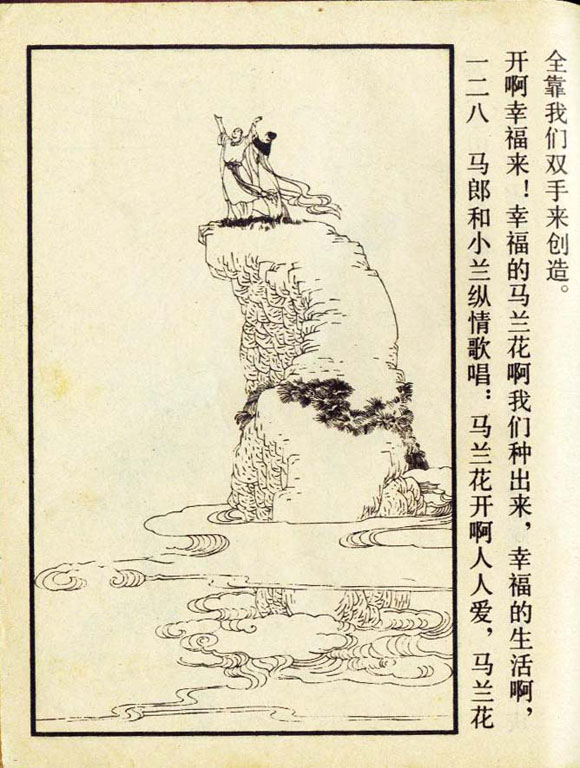 一二八 马郎和小兰纵情歌唱：马兰花开啊人人爱，马兰花
开啊幸福来！幸福的马兰花啊我们种出来，幸福的生活啊，
全靠我们双手来创造。